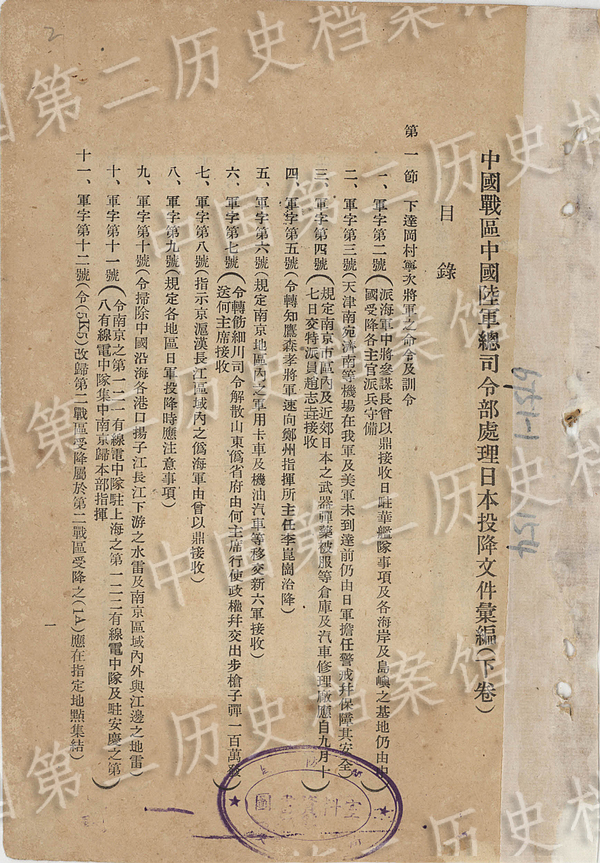 中國戰區中國陸軍總司令部處理日本投降文件彙編(下卷)
目錄
第一節　下達岡村寧次將軍之命令及訓令
一、軍字第二號(派海軍中將參謀長曾以鼎接收日駐華艦隊事項及各海岸及島嶼之基地仍由中
國受降各主官派兵守備)
二、軍字第三號(天津南宛濟南等機場在我軍及美軍未到達前仍由日軍擔任警戒幷保障其安全)
三、軍字第四號(規定南京市區內及近郊日本之武器彈藥被服等倉庫及汽車修理廠應自九月十
七日交特派員趙志垚接收)
四、軍字第五號(令轉知鷹森孝將軍速向鄭州指揮所主任李崑崗洽降)
五、軍字第六號(規定南京地區內之軍用卡車及機油汽車等移交新六軍接收)
六、軍字第七號(令轉飭細川司令解散山東僞省府由何主席行使政權幷交出步槍子彈一百萬發
送何主席接收)
七、軍字第八號(指示京滬漢長江區域內之僞海軍由曾以鼎接收)
八、軍字第九號(規定各地區日軍投降時應注意事項)
九、軍字第十號(令掃除中國沿海各港口揚子江長江下游之水雷及南京區域內外與江邊之地雷)
十、軍字第十一號(令南京之第一二一有線電中隊駐上海之第一二二有線電中隊及駐安慶之第
八有線電中隊集中南京歸本部指揮)
十一、軍字第十二號(令(5K5)改歸第二戰區受降屬於第二戰區受降之(1A)應在指定地點集結)
一
2
圖書資料室
中国第二历史档案馆